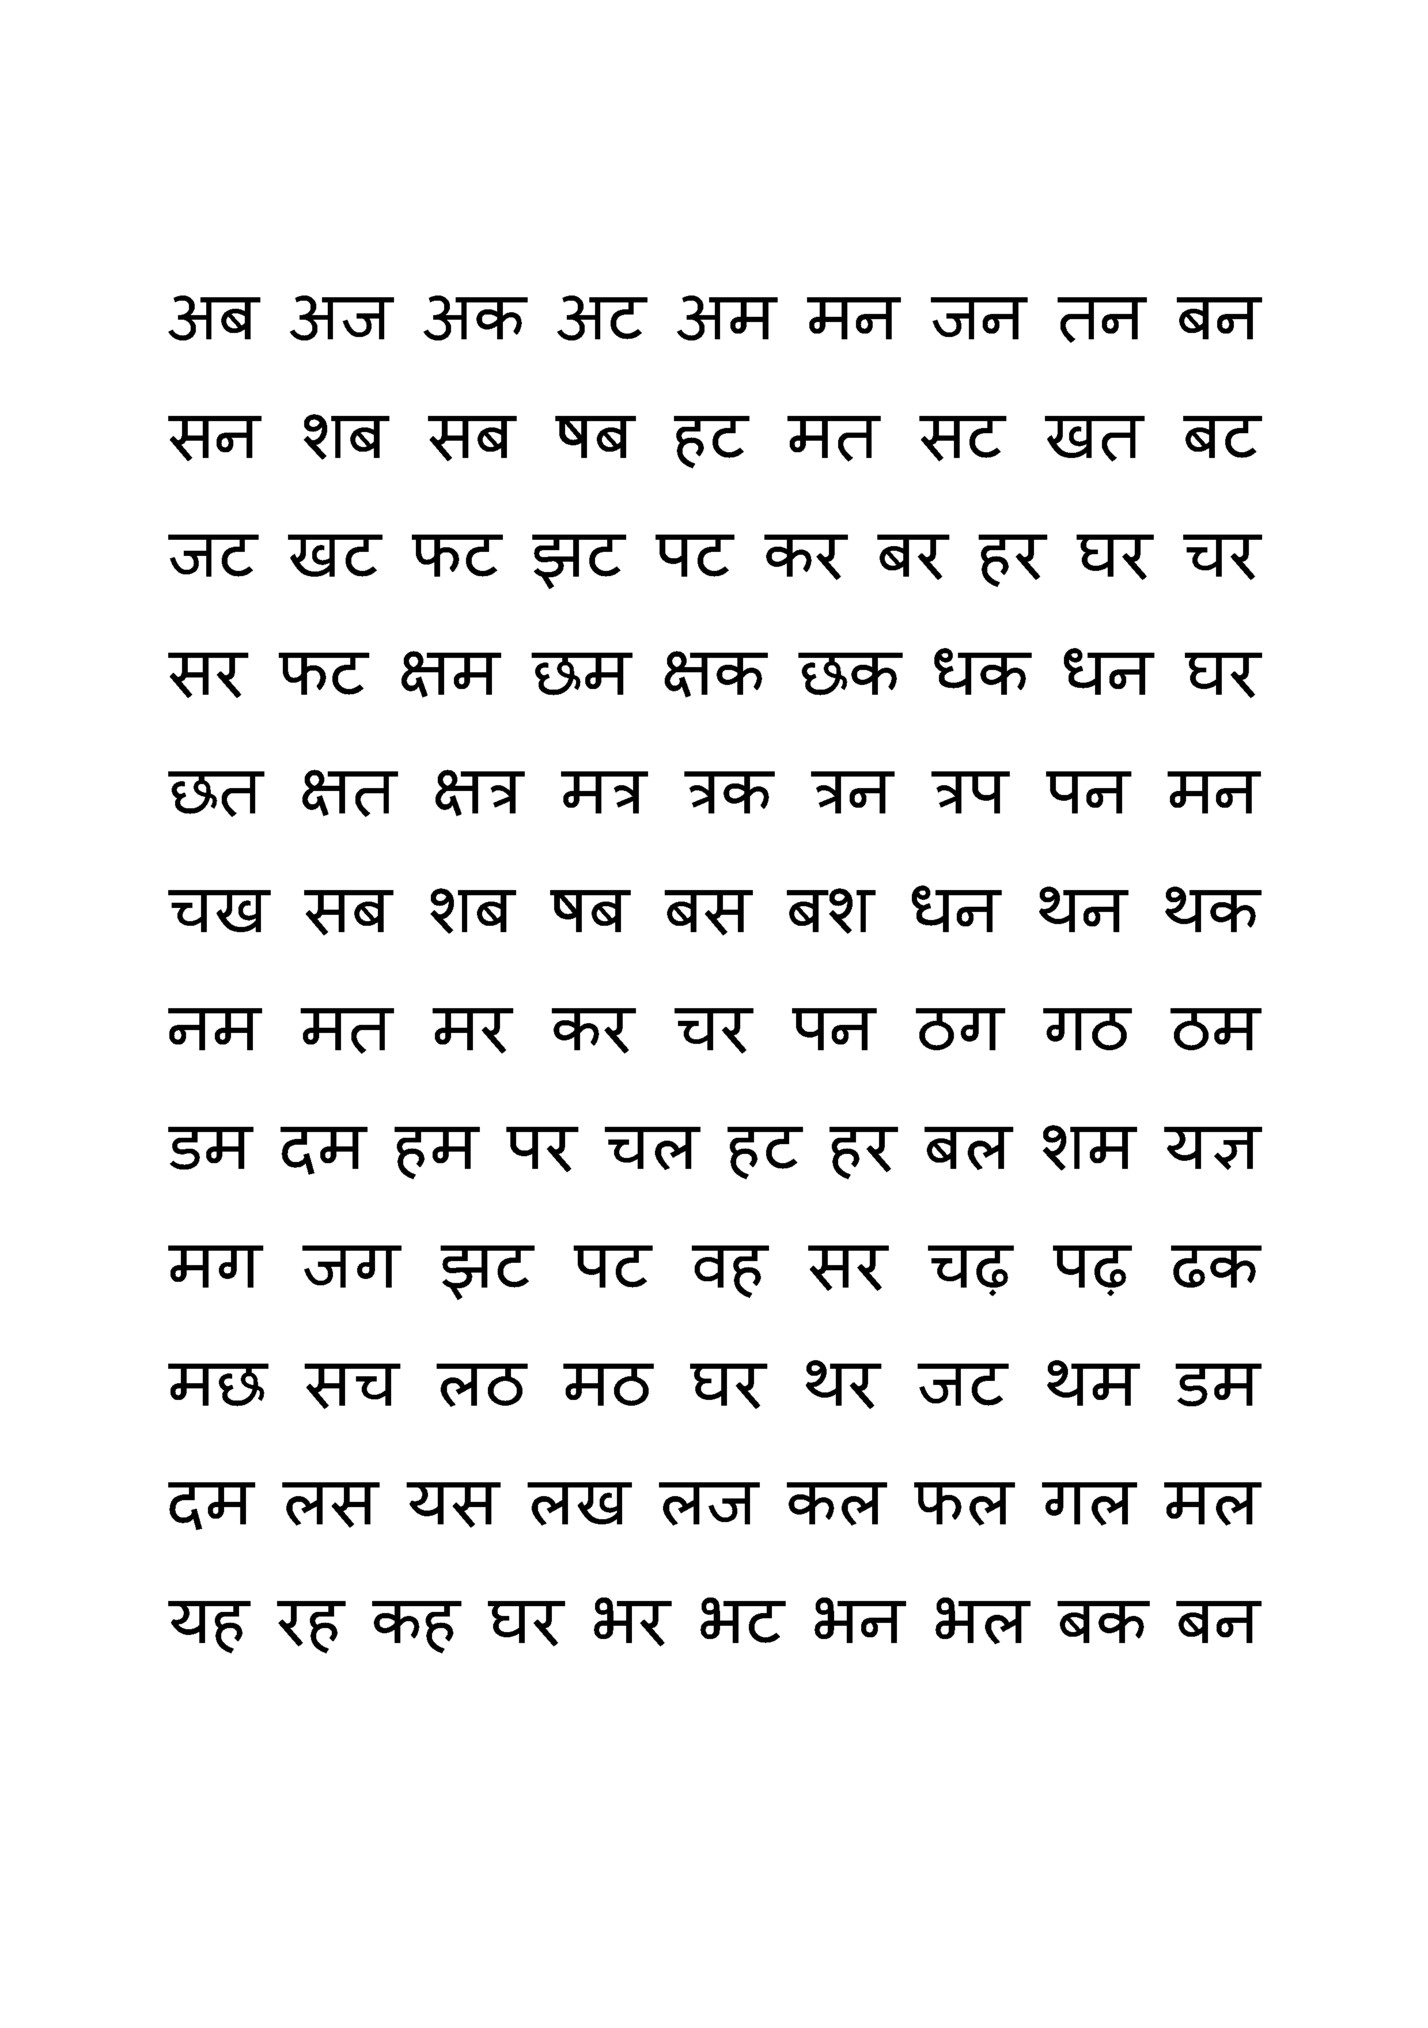 अब अज अक अट अम मन जन तन बन
सन शब सब षब हट मत सट खत बट
जट खट फट झट पट कर बर हर घर चर
सर फट क्षम छम क्षक छक धक धन घर
छत क्षत क्षत्र मत्र त्रक त्रन त्रप पन मन
चख सब शब षब बस बश धन थन थक
नम मत मर कर चर पन ठग गठ ठम
डम दम हम पर चल हट हर बल शम यज्ञ
मग जग झट पट वह सर चढ़ पढ़ ढक
मछ सच लठ मठ घर थर जट थम डम
दम लस यस लख लज कल फल गल मल
यह रह कह घर भर भट भन भल बक बन